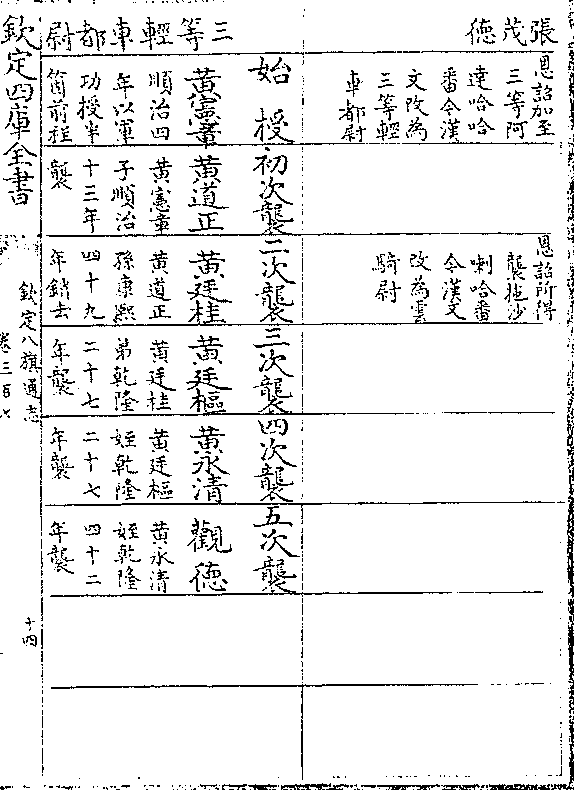 張茂德
恩詔加至
三等阿
達哈哈
番令漢
文改為
三等輕
車都尉
恩詔所得
襲拖沙
喇哈番
令漢文
改為雲
騎尉
三等輕車都尉
始授
黃憲章
順治四
年以軍
功授半
箇前程
初次襲
黃道正
黃憲章
子順治
十三年
襲
二次襲
黃廷桂
黃道正
孫康熙
四十九
年銷去
三次襲
黃廷樞
黃廷桂
弟乾隆
二十七
年襲
四次襲
黃永清
黃廷樞
姪乾隆
二十七
年襲
五次襲
觀德
黃永清
姪乾隆
四十二
年襲
欽定四庫全書
欽定八旗通志
卷三百七
十四